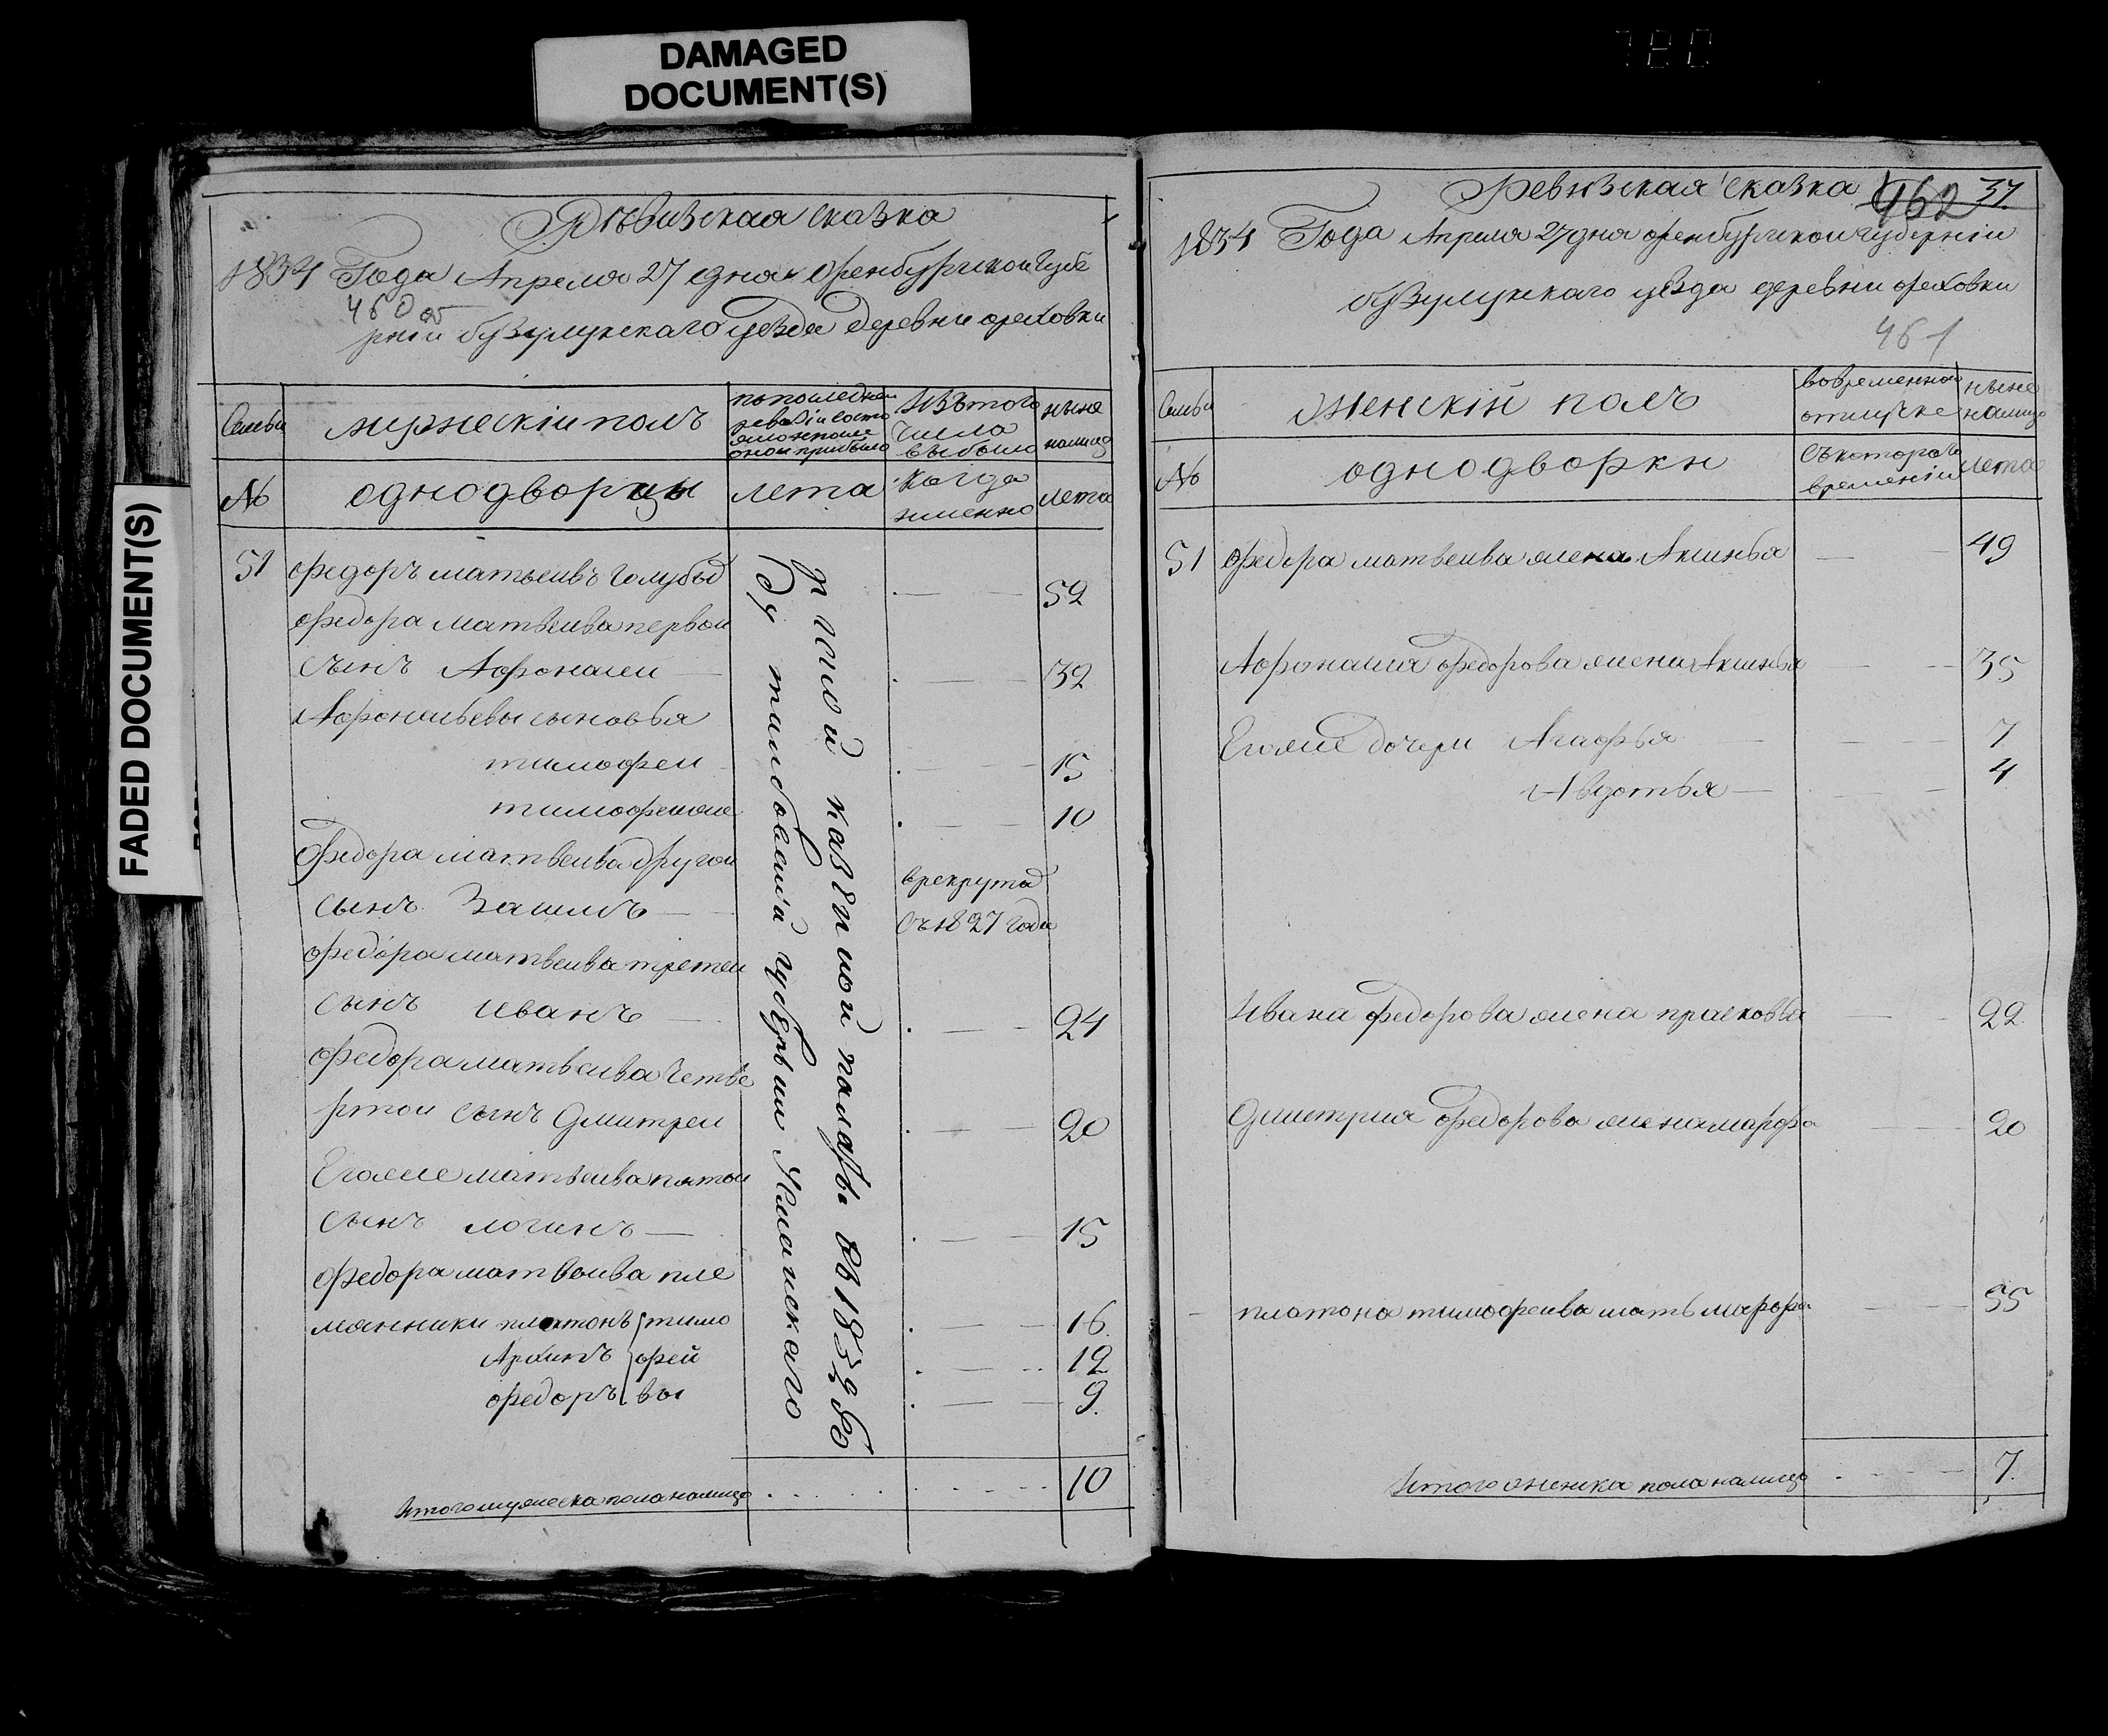 DAMAGED
DOCUMENT(S)
FADED DOCUMENT(S)
Ревизская сказка
1834 Года Апреля 27 дня оренбургской губе
460 об
рнии бузулукского уезда деревни ореховки
Семьи
мужескій полъ
по последней
ревизіи состо
яло и после
оной прибыло
Изъ того
числа
выбыло
ныне
налицо
№
однодворцы
лета
Когда
именно
лета
51
федоръ матвеивъ голубъ
52
федора матвеива первой
сынъ Афонасеи
32
Афонасьевы сыновья
тимофеи
15
тимофеиже
10
федора матвеива другои
сынъ
врекруты
съ 1827 года
федора матвеива третеи
сынъ иванъ
24
федора матвеива четве
ртои сынъ Дмитреи
20
Егоже матвеива пятои
сынъ логинъ
15
федора матвеива пле
мянники платонъ тимо
16
Архипъ фей
12
федоръ вы
9
Итого мужеска пола налицо
10
тамбовской губернии
казенной полаты въ 1832 го
Ревизская сказка
462
37
1834 Года Апреля 27 дня оренбургской губерніи
бузулукского уезда деревни ореховки
461
Семьи
женскій полъ
во временной
отлучке
ныне
налицо
№
однодворки
съ которого
времени
лета
51
федора матвеива жена Акинья
49
Афонасия федорова жена Акинья
35
Егоже дочери Агафья
7
Авдотья
4
Ивана федорова жена прасковья
22
Дмитрия федорова жена марфа
20
платона тимофеива мать марфа
55
Итого женска пола налицо
7